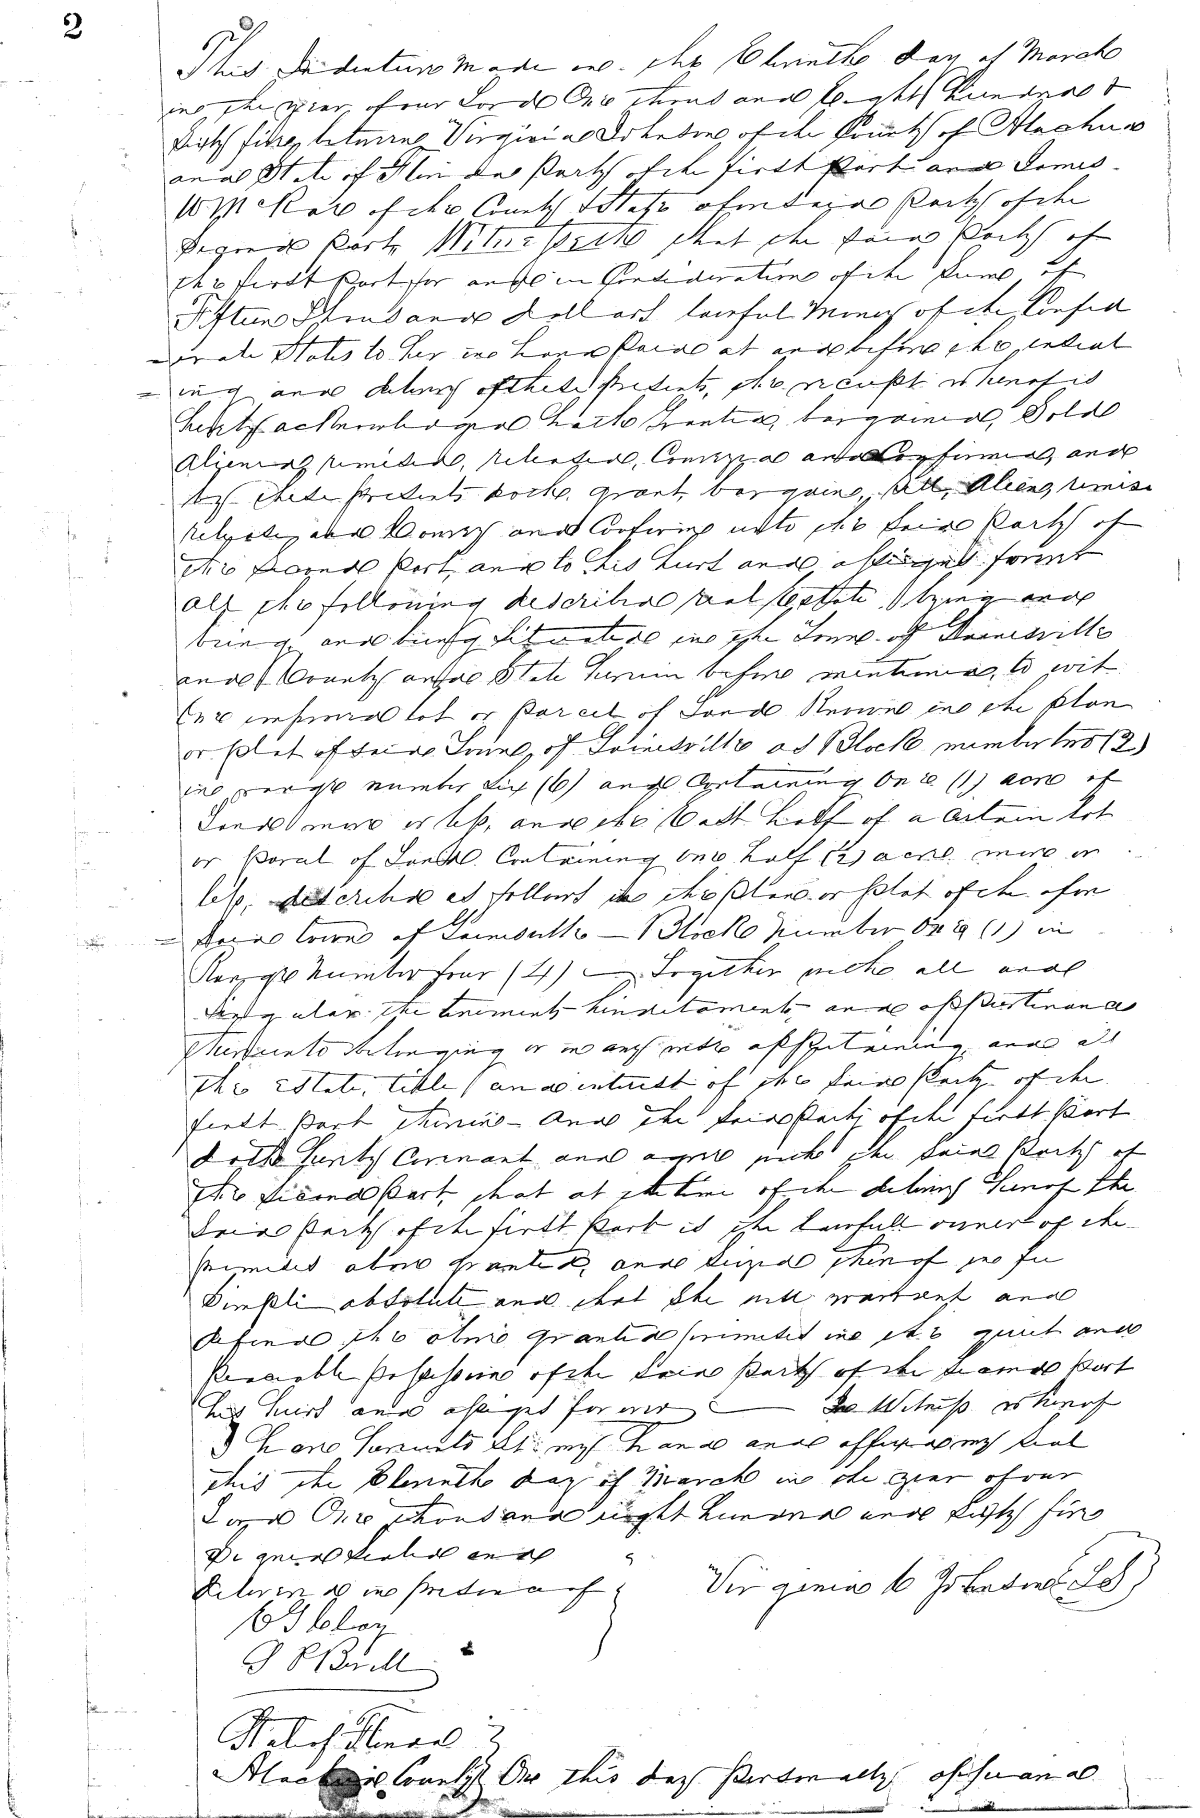 2
This Indenture Made on the Eleventh day of March
in the year of our Lord One thousand Eight Hundred &
Sixty five, between Virginia Johnson of the County of Alachua
and State of Florida Party of the first Part and James
W McRae of the County & State aforesaid Party of the
Second Part, Witnesseth that the said Party of
the first Part for and in Consideration of the Sum of
Fifteen Thousand Dollars lawful Money of the Confed
-erate States to her in hand Paid at and before the enseal
=ing and delivery of these Presents, the receipt whereof is
hereby acknowledged hath Granted, bargained, Sold
Aliened, remised, released, Conveyed and Confirmed, and
by these Presents doth grant, bargain, Sell, Alien, remise
release, and Convey and Confirm unto the said Party of
the Second Part, and to his heirs and assigns forever
all the following described real Estate lying and
being, and being Situated in the Town of Gainesville
and County and State herein before mentioned, to wit
One improved lot or Parcel of Land Known in the Plan
or Plat of said Town, of Gainesville as Block number two (2)
in range number Six (6) and Containing One (1) acre of
Land more or less, and the East half of a Certain lot
or Parcel of Land Containing One half (½) acre more or
less, described as follows in the Plan or Plat of the afore
=said town of Gainesville — Block Number One (1) in
Range Number four (4) — Together with all and
Singular the tenements hereditaments and appurtenances
thereunto belonging or in any wise appertaining and all
the Estate, title and interest of the said Party of the
first Part therein - And the said Party of the first Part
doth hereby Covenant and agree with the said Party of
the Second Part, that at the time of the delivery hereof the
said Party of the first Part is the lawfull owner of the
premises above granted, and seized thereof in fee
Simple absolute and that She will warrant and
defend the above granted premises in the quiet and
Peaceable Possession of the said Party of the Second Part
his heirs and assigns forever — In Witness whereof
I have hereunto Set my hand and affixed my Seal
this the Eleventh day of March in the year of our
Lord One thousand eight hundred and Sixty five
Signed Sealed and
Delivered in Presence of Virginia C Johnson LS
State of Florida
Alachua County On this day Personally appeared